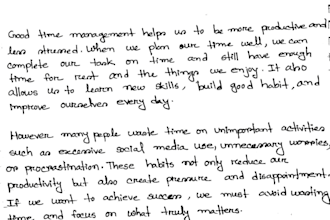 Good time management helps us to be more productive and
less stressed. When we plan our time well, we can
complete our task on time and still have enough
time for rest and the things we enjoy. It also
allows us to learn new skills, build good habit, and
improve ourselves every day.
However many people waste time on unimportant activities
such as excessive social media use, unnecessary worries,
or procrastination. These habits not only reduce our
productivity but also create pressure and disappointment.
If we want to achieve success, we must avoid wasting
time and focus on what truly matters.